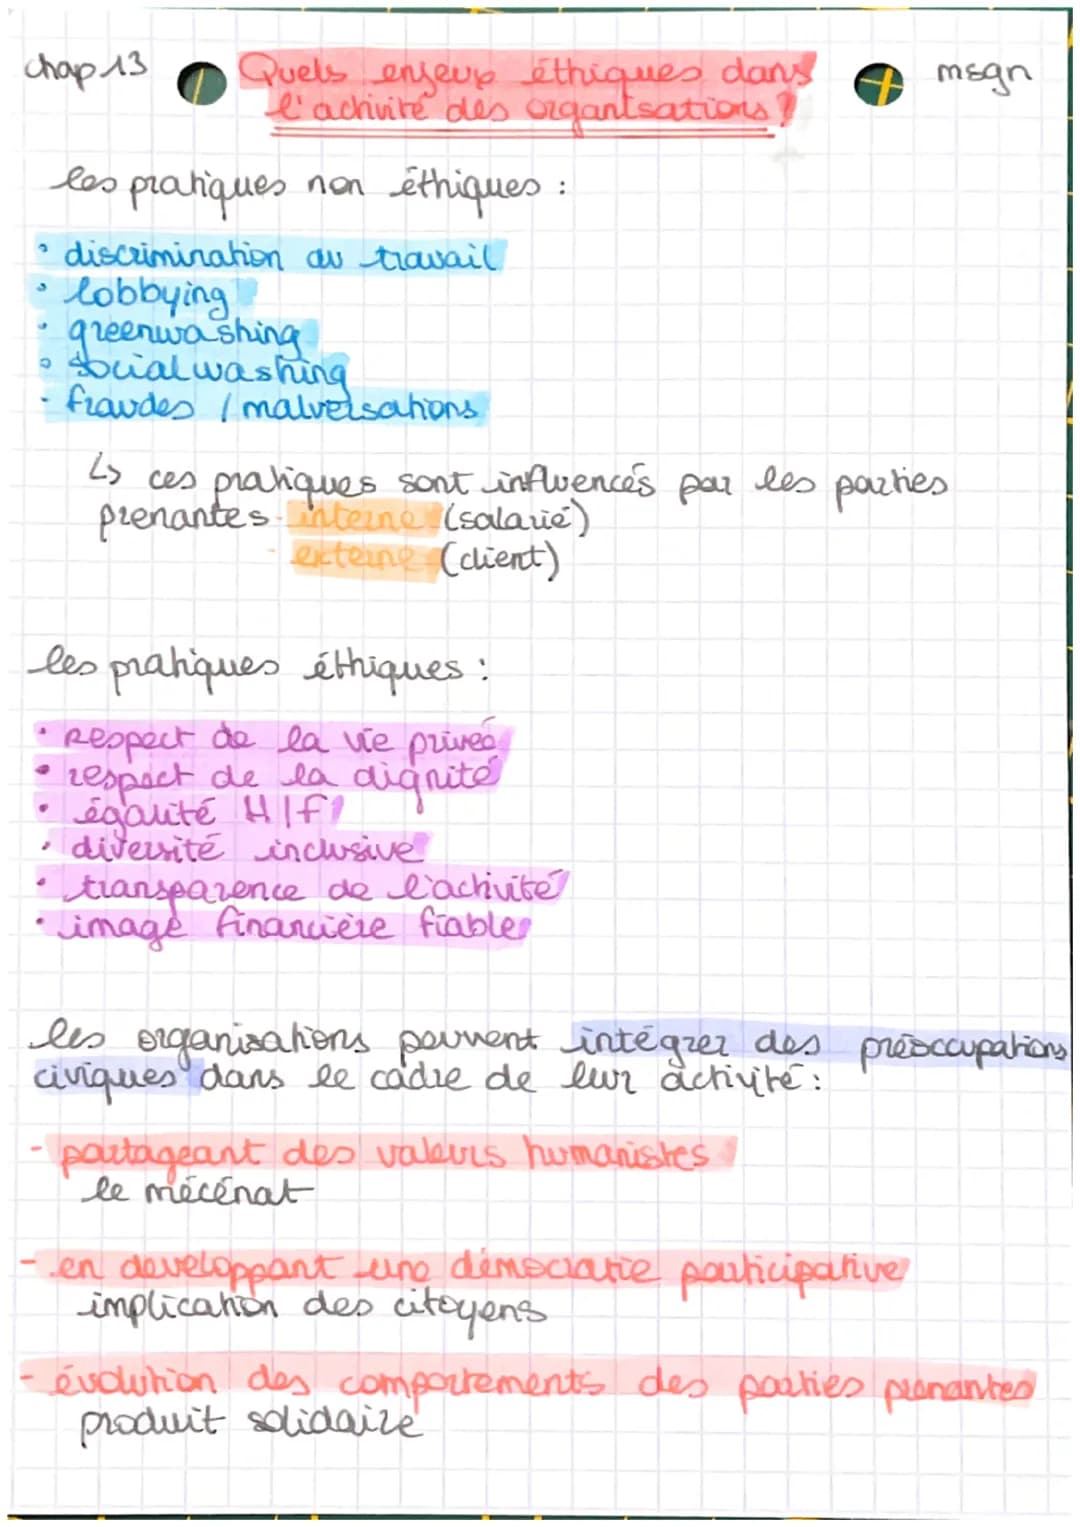 chap 13 Quels enjeux éthiques dans msgn
l'activité des organisations ?
les pratiques non éthiques :
• discrimination au travail
• lobbying
• greenwashing
• social washing
• fraudes / malversations
↳ ces pratiques sont influencés par les parties
prenantes - interne (salarié)
- externe (client)
les pratiques éthiques :
• respect de la vie privée
• respect de la dignité
• égalité H/F
• diversité inclusive
• transparence de l'activité
• image financière fiable
les organisations peuvent intégrer des préoccupations
civiques dans le cadre de leur activité :
- partageant des valeurs humanistes
le mécénat
- en developpant une démocratie participative
implication des citoyens
- évolution des comportements des parties prenantes
produit solidaire